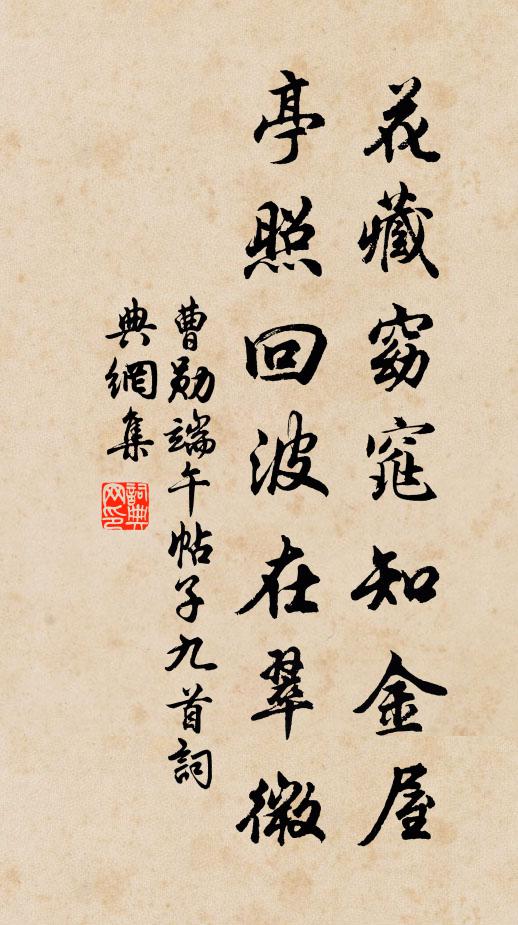 花藏窈窕知金屋
亭照回波在翠微
曹勛端午帖子九首詞
典網集
詞典
网印